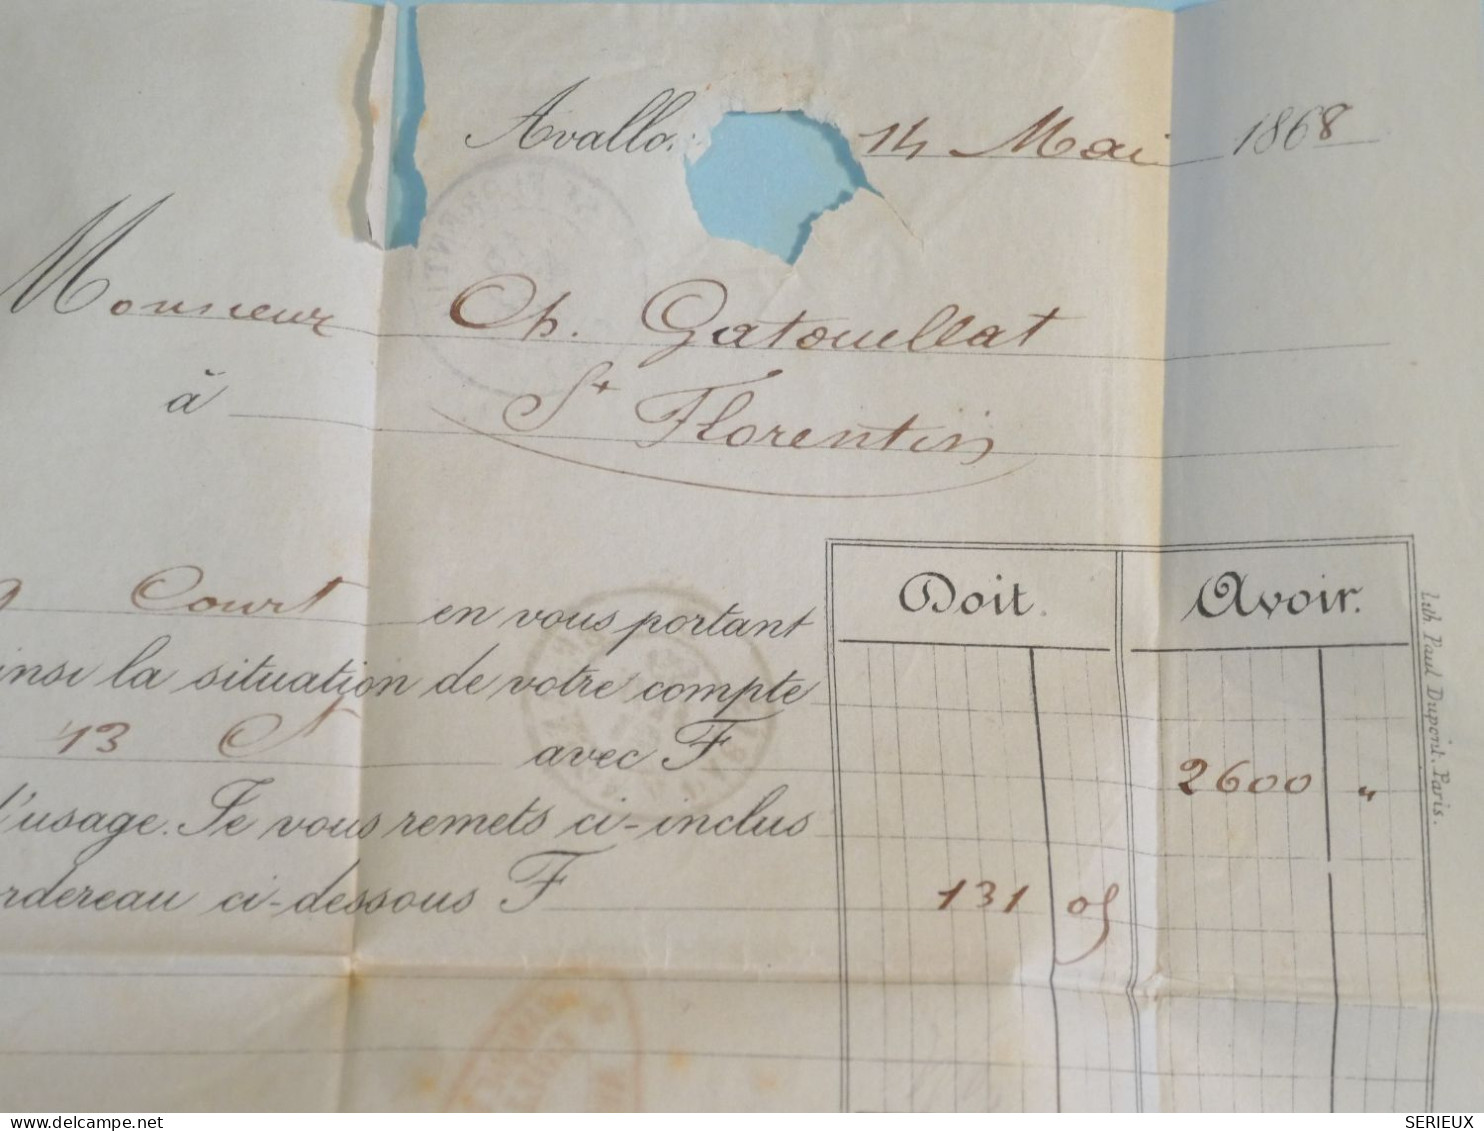 Avallo 14 Mai 1868
Monsieur Ch. Gatouillat
à St Florentin
Doit. Avoir.
Court en vous portant
insi la situation de votre compte
13 Ct avec F 2600 "
l'usage. Je vous remets ci-inclus
rdereau ci-dessous F 131 05
Lith Paul Dupont. Paris.
SERIEUX